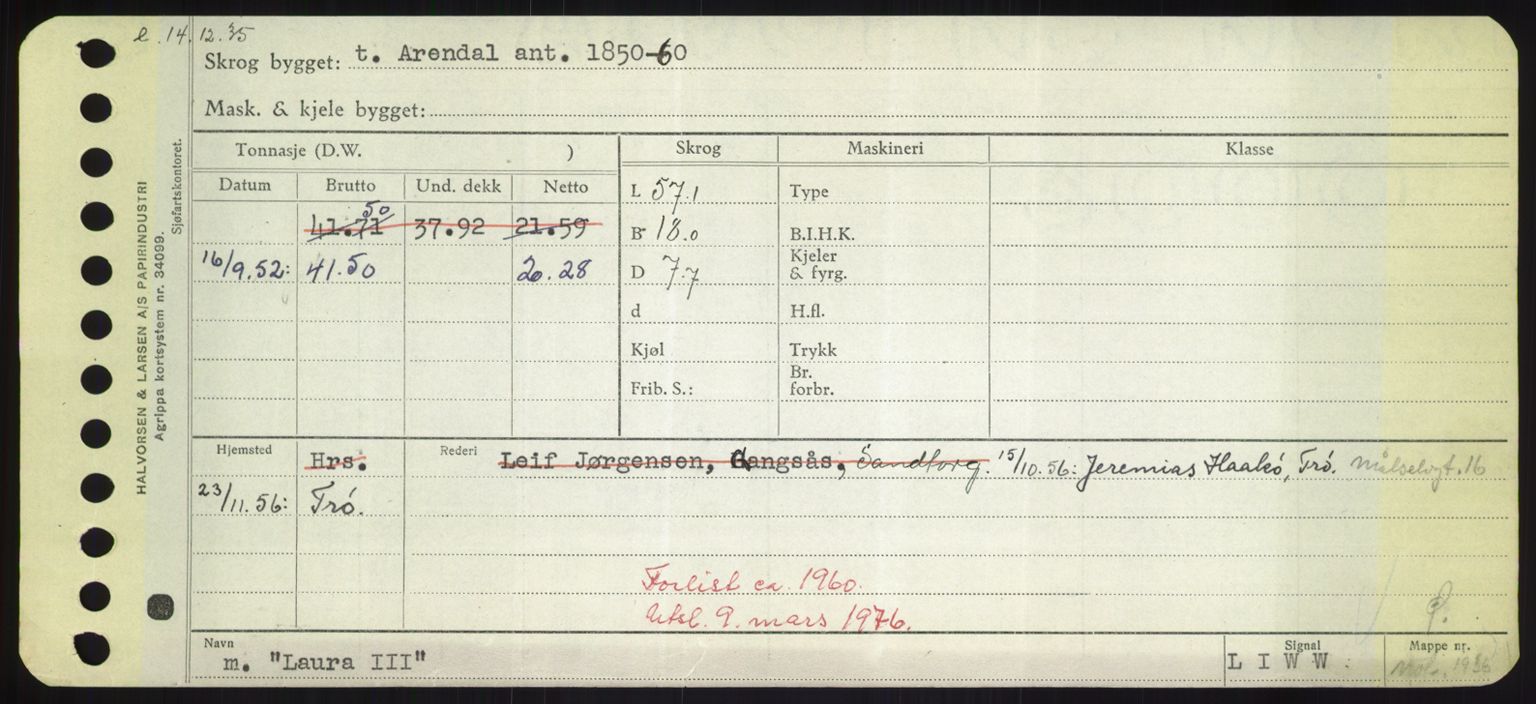 e. 14.12.35
Skrog bygget: t. Arendal ant. 1850-60
Mask. & kjele bygget:
Tonnasje (D.W. )
Skrog Maskineri Klasse
Datum Brutto Und. dekk Netto
L 57.1 Type
50
41.71 37.92 21.59
B 18.0 B.I.H.K.
16/9.52: 41.50 20.28
D 7.7 Kjeler & fyrg.
d H.fl.
Kjøl Trykk
Frib. S.: Br. forbr.
Hjemsted Hrs. Rederi Leif Jørgensen, Gangsås, Sandtorg. 15/10.56: Jeremias Haakó, Tró. Målselvgt. 16
23/11.56: Tró.
Forlist ca. 1960.
Utsl. 9. mars 1976.
Navn Signal Mappe nr.
m. "Laura III" L I W W 1936
HALVORSEN & LARSEN A/S PAPIRINDUSTRI
Agrippa kortsystem nr. 34099.
Sjøfartskontoret.